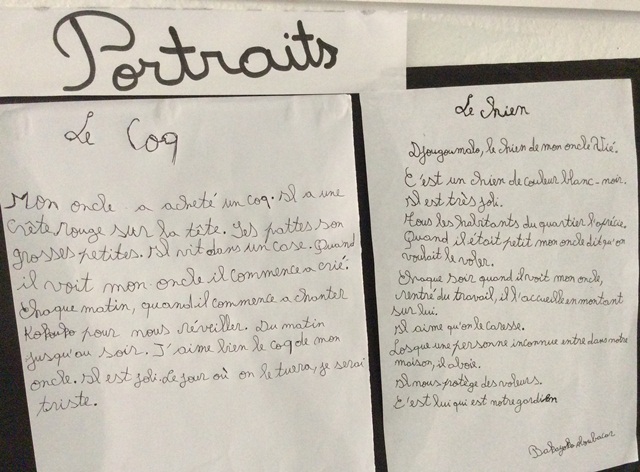 Portraits
Le Coq
Mon oncle a acheté un coq. Il a une
crête rouge sur la tête. Ses pattes son
grosses petites. Il vit dans un case. Quand
il voit mon oncle il commence a crié.
Chaque matin, quand il commence a chanter
Kokoko pour nous réveiller. Du matin
jusqu'au soir. J'aime bien le coq de mon
oncle. Il est joli. Le jour où on le tuera, je serai
triste.
Le chien
Djougoumalo, le chien de mon oncle Vié.
C'est un chien de couleur blanc-noir.
Il est très joli.
Tous les habitants du quartier l'aprécie.
Quand il était petit mon oncle dit qu'on
voulait le voler.
Chaque soir quand il voit mon oncle,
rentré du travail, il l'accueille en montant
sur lui.
Il aime qu'on le caresse.
Lorsque une personne inconnue entre dans notre
maison, il aboie.
Il nous protège des voleurs.
C'est lui qui est notre gardien